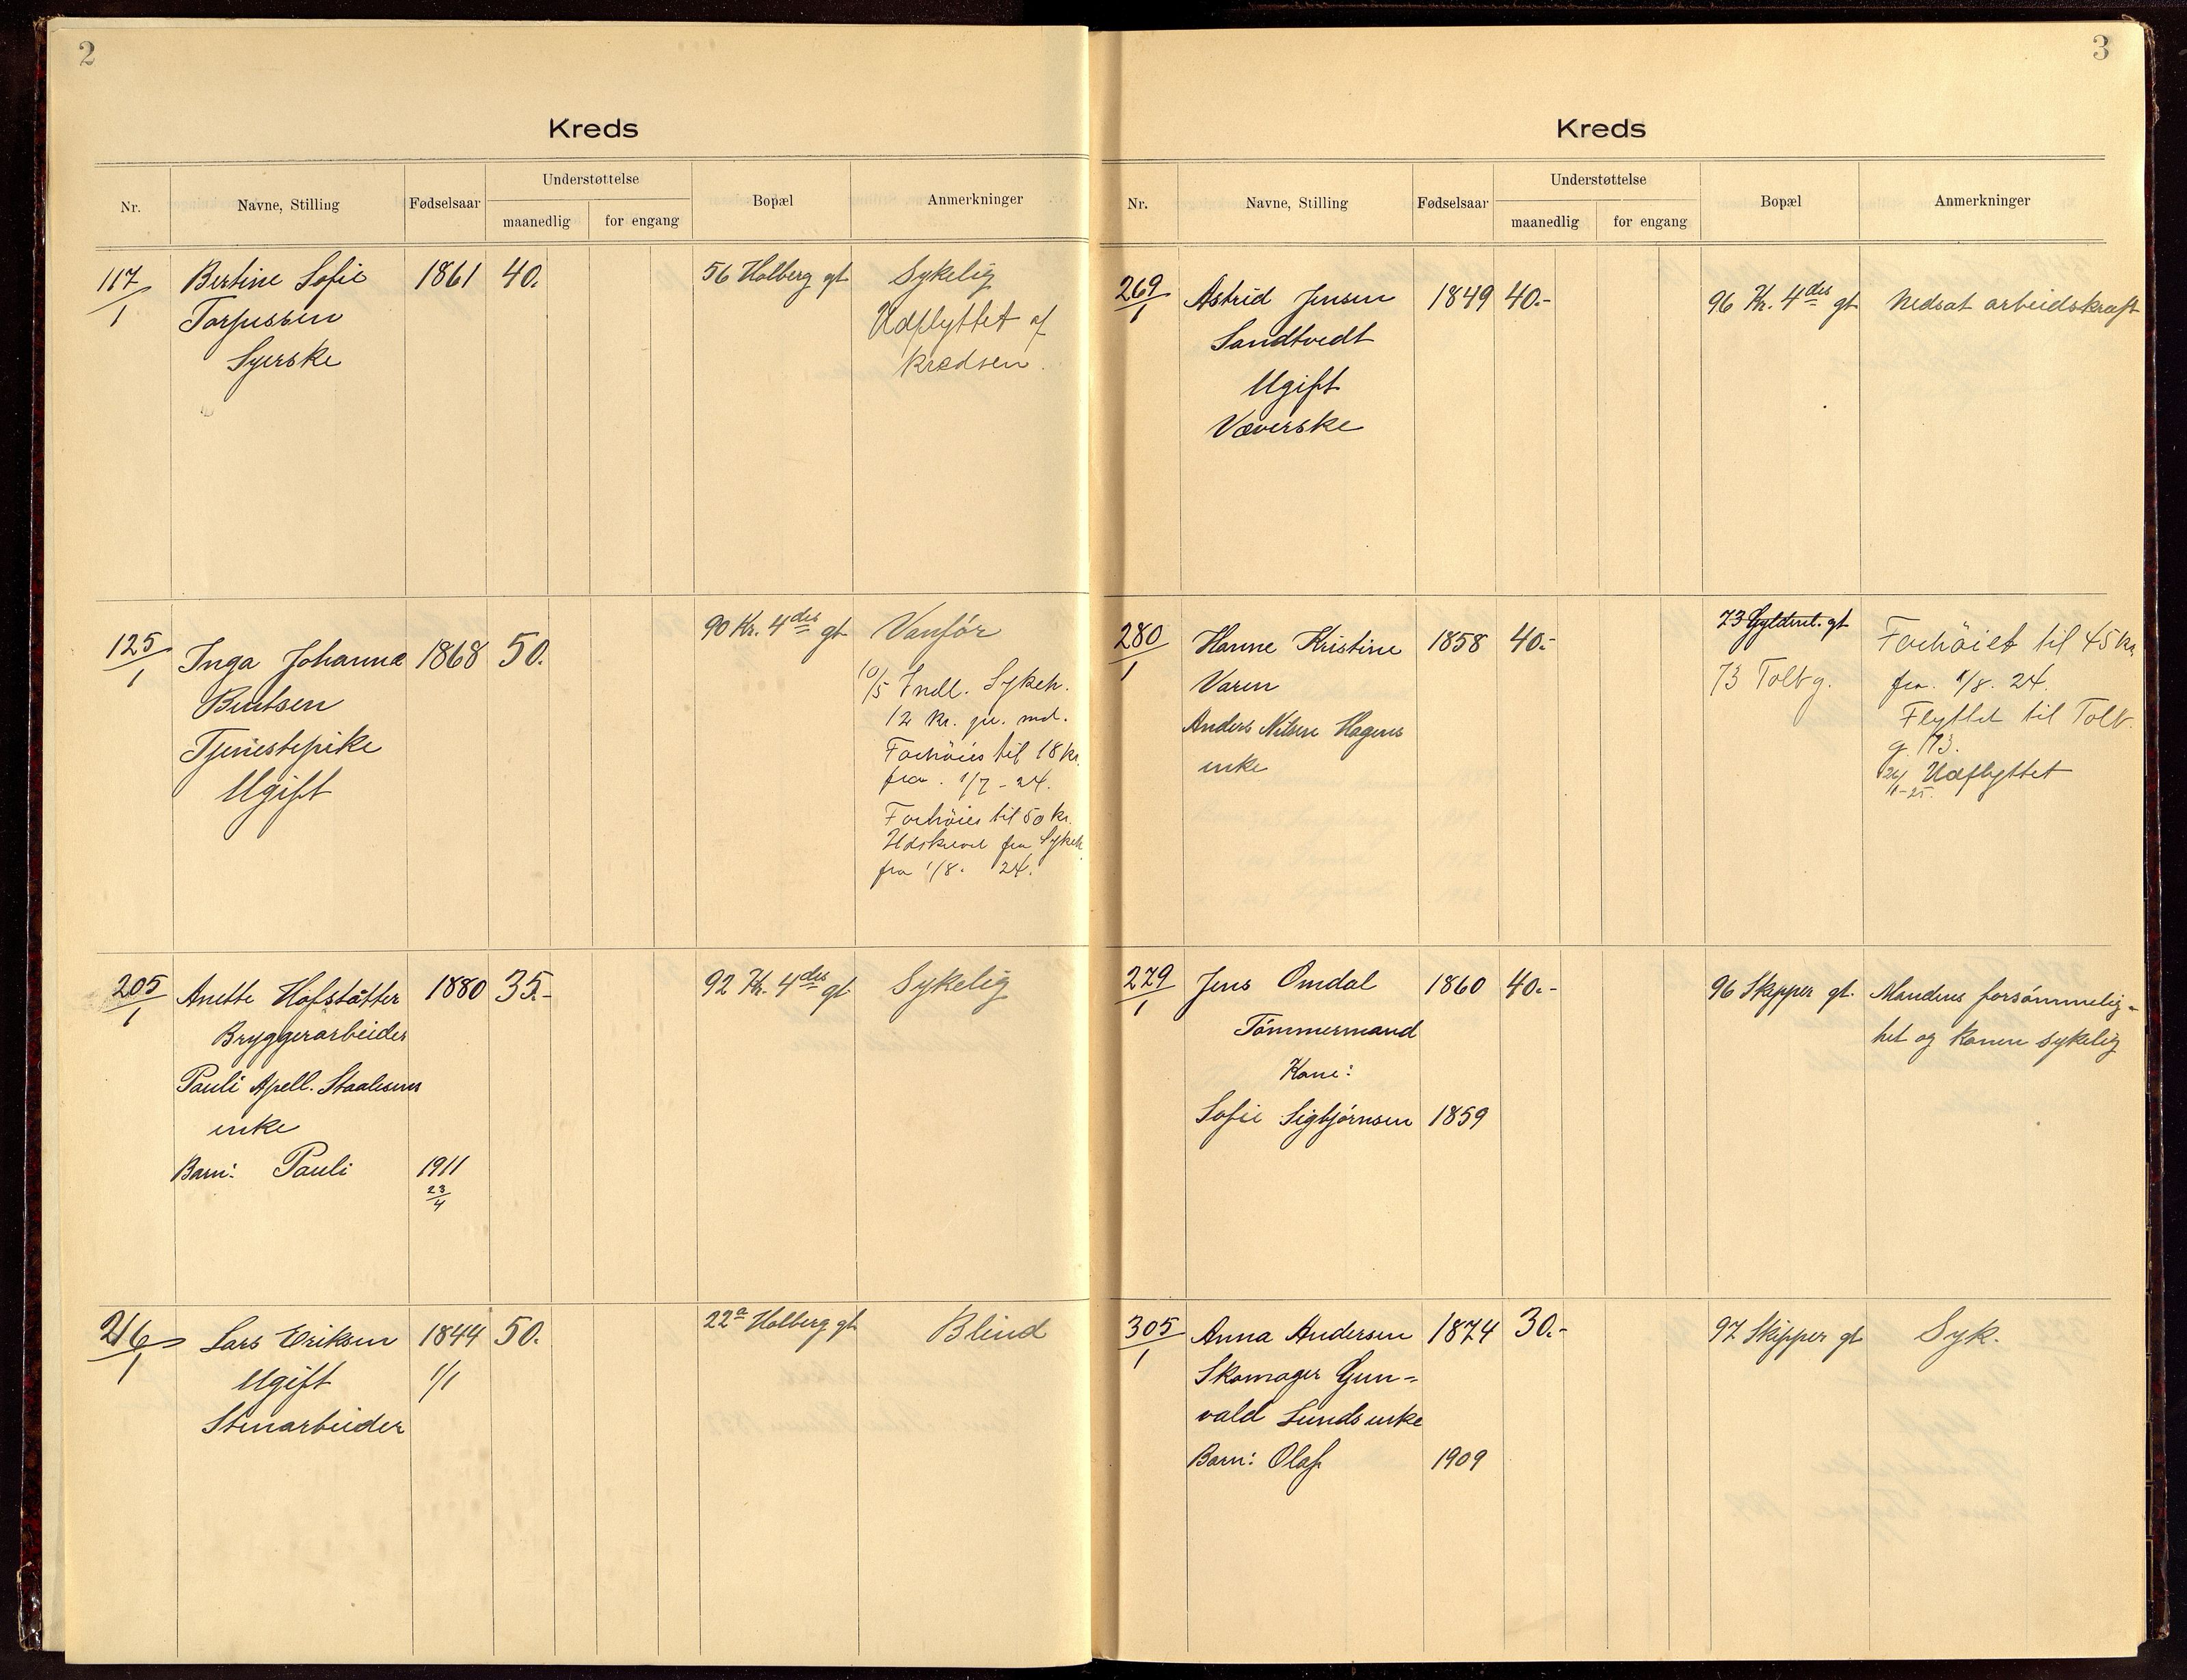 2
Kreds
Nr.
Navne, Stilling
Fødselsaar
Understøttelse
maanedlig
for engang
Bopæl
Anmerkninger
117/1
Bertine Sofie
1861
40.
56 Holberg gt
Sykelig
Torjussen
Udflyttet af
Syerske
kredsen.
125/1
Inga Johanne
1868
50.
90 Kr. 4des gt
Vanför
Bentsen
10/5 Indl. Sykeh.
Tjenestepike
12 kr. pr. md.
Ugift
Forhöies til 18 kr.
fra. 1/7 - 24.
Forhöies til 50 kr.
Udskrevet fra Sykeh.
fra 1/8. 24.
205/1
Anette Hofstätter
1880
35.-
92 Kr. 4des gt
Sykelig
Bryggerarbeider
Pauli Apell. Staalesens
enke
Barn: Pauli
1911
23/4
216/1
Lars Eriksen
1844
50.
22a Holberg gt
Blind
Ugift
1/1
Stenarbeider
3
Kreds
Nr.
Navne, Stilling
Fødselsaar
Understøttelse
maanedlig
for engang
Bopæl
Anmerkninger
269/1
Astrid Jensen
1849
40.-
96 Kr. 4des gt
Nedsat arbeidskraft
Sandtvedt
Ugift
Væverske
280/1
Hanne Kristine
1858
40.-
73 Gyldenl. gt
Forhöiet til 45 kr.
Varen
73 Tolbg.
fra. 1/8. 24.
Anders Nilsen Hagens
Flyttet til Tolb.
enke
g. 73.
24/1-25. Udflyttet
279/1
Jens Omdal
1860
40.-
96 Skipper gt.
Mandens forsömmelig-
Tömmermand
het og konen sykelig
Kone:
Sofie Sigbjörnsen
1859
305/1
Anna Andersen
1874
30.-
97 Skipper gt
Syk.
Skomager Gun-
vald Lunds enke
Barn: Olaf
1909